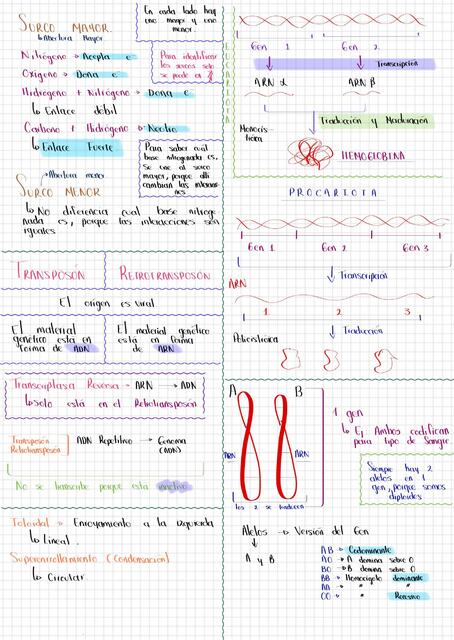 SURCO MAYOR
↳ Abertura Mayor
En cada lado hay
uno mayor y uno
menor.
Nitrógeno → Acepta e⁻
Oxígeno → Dona e⁻
Hidrógeno + Nitrógeno → Dona e⁻
↳ Enlace débil
Carbono + Hidrógeno → Neutro
↳ Enlace Fuerte
Para identificar
los surcos solo
se puede en
Para saber cuál
base nitrogenada es,
se une al surco
mayor, porque allí
cambian las interaccio
nes
Abertura menor
SURCO MENOR
↳ No diferencia cual base nitroge
nada es, porque las interacciones son
iguales
TRANSPOSÓN
RETROTRANSPOSÓN
El origen es viral
El material
genético está en
forma de ADN
El material genético
está en forma
de ARN
Transcriptasa Reversa → ARN → ADN
↳ Solo está en el Retrotransposón
Transposón
Retrotransposón
ADN Repetitivo → Genoma
(ADN)
No se transcribe porque está inactivo
Toloidal → Enrollamiento a la izquierda
↳ Lineal.
Superenrollamiento (Condensación)
↳ Circular
Gen 1
Gen 2
Transcripción
ARN α
ARN β
Traducción y Maduración
Monocis
trónica
HEMOGLOBINA
PROCARIOTA
Gen 1
Gen 2
Gen 3
Transcripción
ARN
1
2
3
Traducción
Policistrónica
A
B
ARN
ARN
los 2 se traducen
1 gen
↳ Ej Ambos codifican
para tipo de Sangre.
Siempre hay 2
alelos en 1
gen, porque somos
diploides
Alelos → Versión del Gen
A y B
AB → Codominante
AO → A domina sobre O
BO → B domina sobre O
BB → Homocigoto dominante
AA → " "
OO → " Recesivo